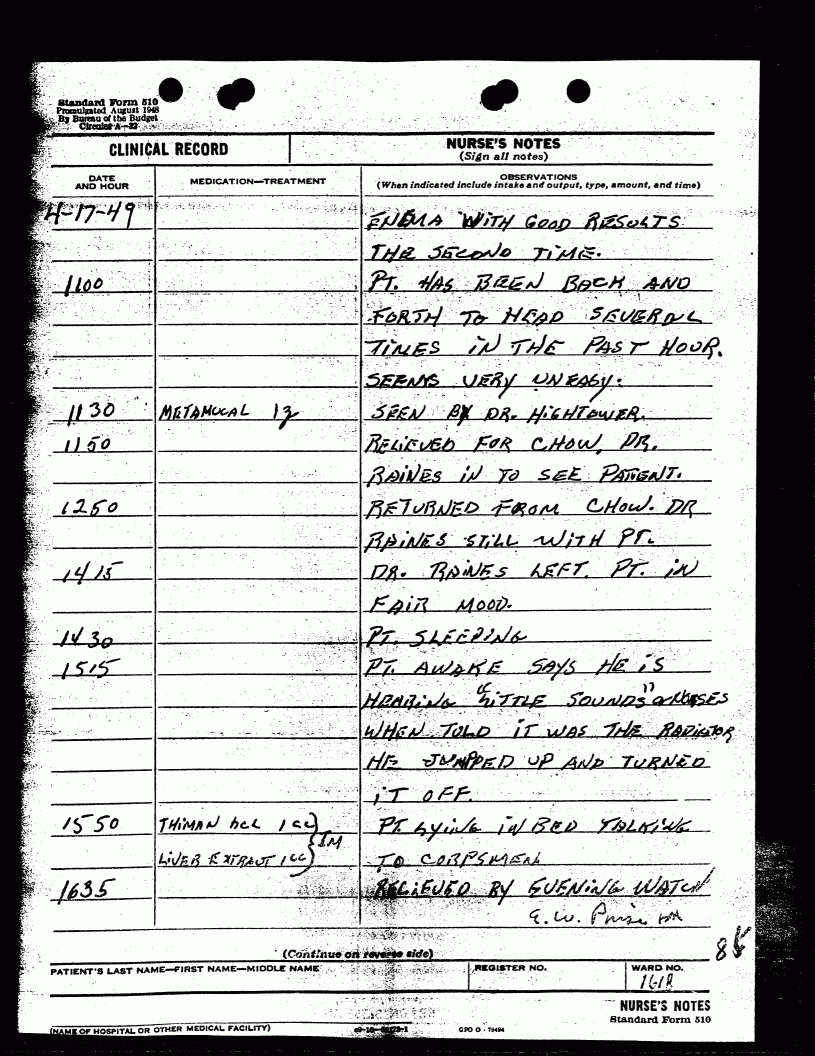 Standard Form 510
Promulgated August 1948
By Bureau of the Budget
Circular A—32
CLINICAL RECORD
NURSE'S NOTES
(Sign all notes)
DATE
AND HOUR
MEDICATION—TREATMENT
OBSERVATIONS
(When indicated include intake and output, type, amount, and time)
4-17-49 ENEMA WITH GOOD RESULTS
THE SECOND TIME.
1100 PT. HAS BEEN BACK AND
FORTH TO HEAD SEVERAL
TIMES IN THE PAST HOUR.
SEEMS VERY UNEASY.
1130 METAMUCAL SEEN BY DR. HIGHTOWER.
1150 RELIEVED FOR CHOW, DR.
RAINES IN TO SEE PATIENT.
1250 RETURNED FROM CHOW. DR
RAINES STILL WITH PT.
1415 DR. RAINES LEFT. PT. IN
FAIR MOOD.
1430 PT. SLEEPING
1515 PT. AWAKE SAYS HE IS
HEARING "LITTLE SOUNDS"
WHEN TOLD IT WAS THE RADIATOR
HE JUMPED UP AND TURNED
IT OFF.
1550 THIMAN hcl 1 cc } PT. LYING IN BED TALKING
IM
LIVER EXTRACT 1 cc } TO CORPSMEN
1635 RELIEVED BY EVENING WATCH
E. W.
(Continue on reverse side)
PATIENT'S LAST NAME—FIRST NAME—MIDDLE NAME
REGISTER NO.
WARD NO.
NURSE'S NOTES
Standard Form 510
(NAME OF HOSPITAL OR OTHER MEDICAL FACILITY)
GPO O - 79494